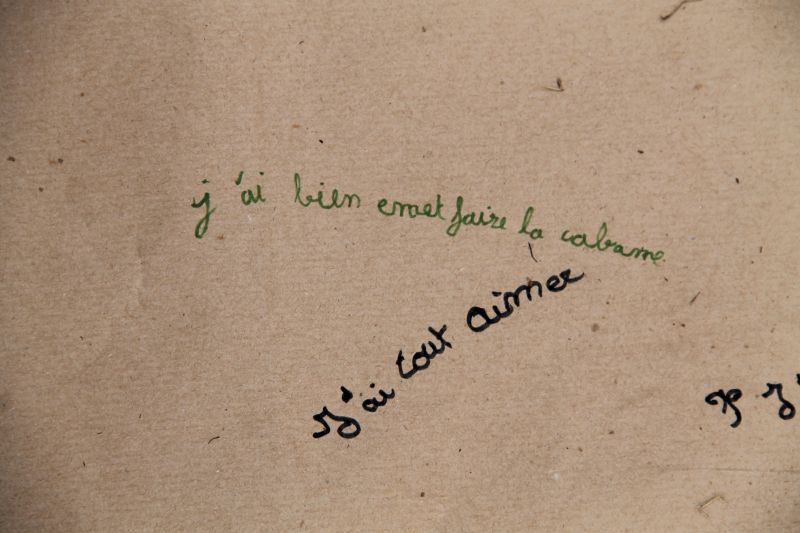 j'ai bien emet faire la cabane
J'ai tout aimer